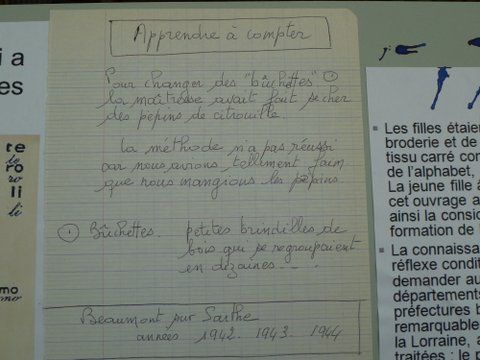 Apprendre à compter
Pour changer des "bûchettes" ①
la maîtresse avait fait sécher
des pépins de citrouille.
la méthode n'a pas réussi
car nous avions tellement faim
que nous mangions les pépins
① Bûchettes. petites brindilles de
bois qui se regroupaient
en dizaines....
Beaumont sur Sarthe
années 1942. 1943. 1944
i a
es
te
le
ro
ro
li
li
mo
mo
Les filles étaien
broderie et de
tissu carré con
de l'alphabet,
La jeune fille
cet ouvrage a
ainsi la consid
formation de l
La connaissa
réflexe condit
demander au
départements
préfectures b
remarquable
la Lorraine, a
traitées : le p